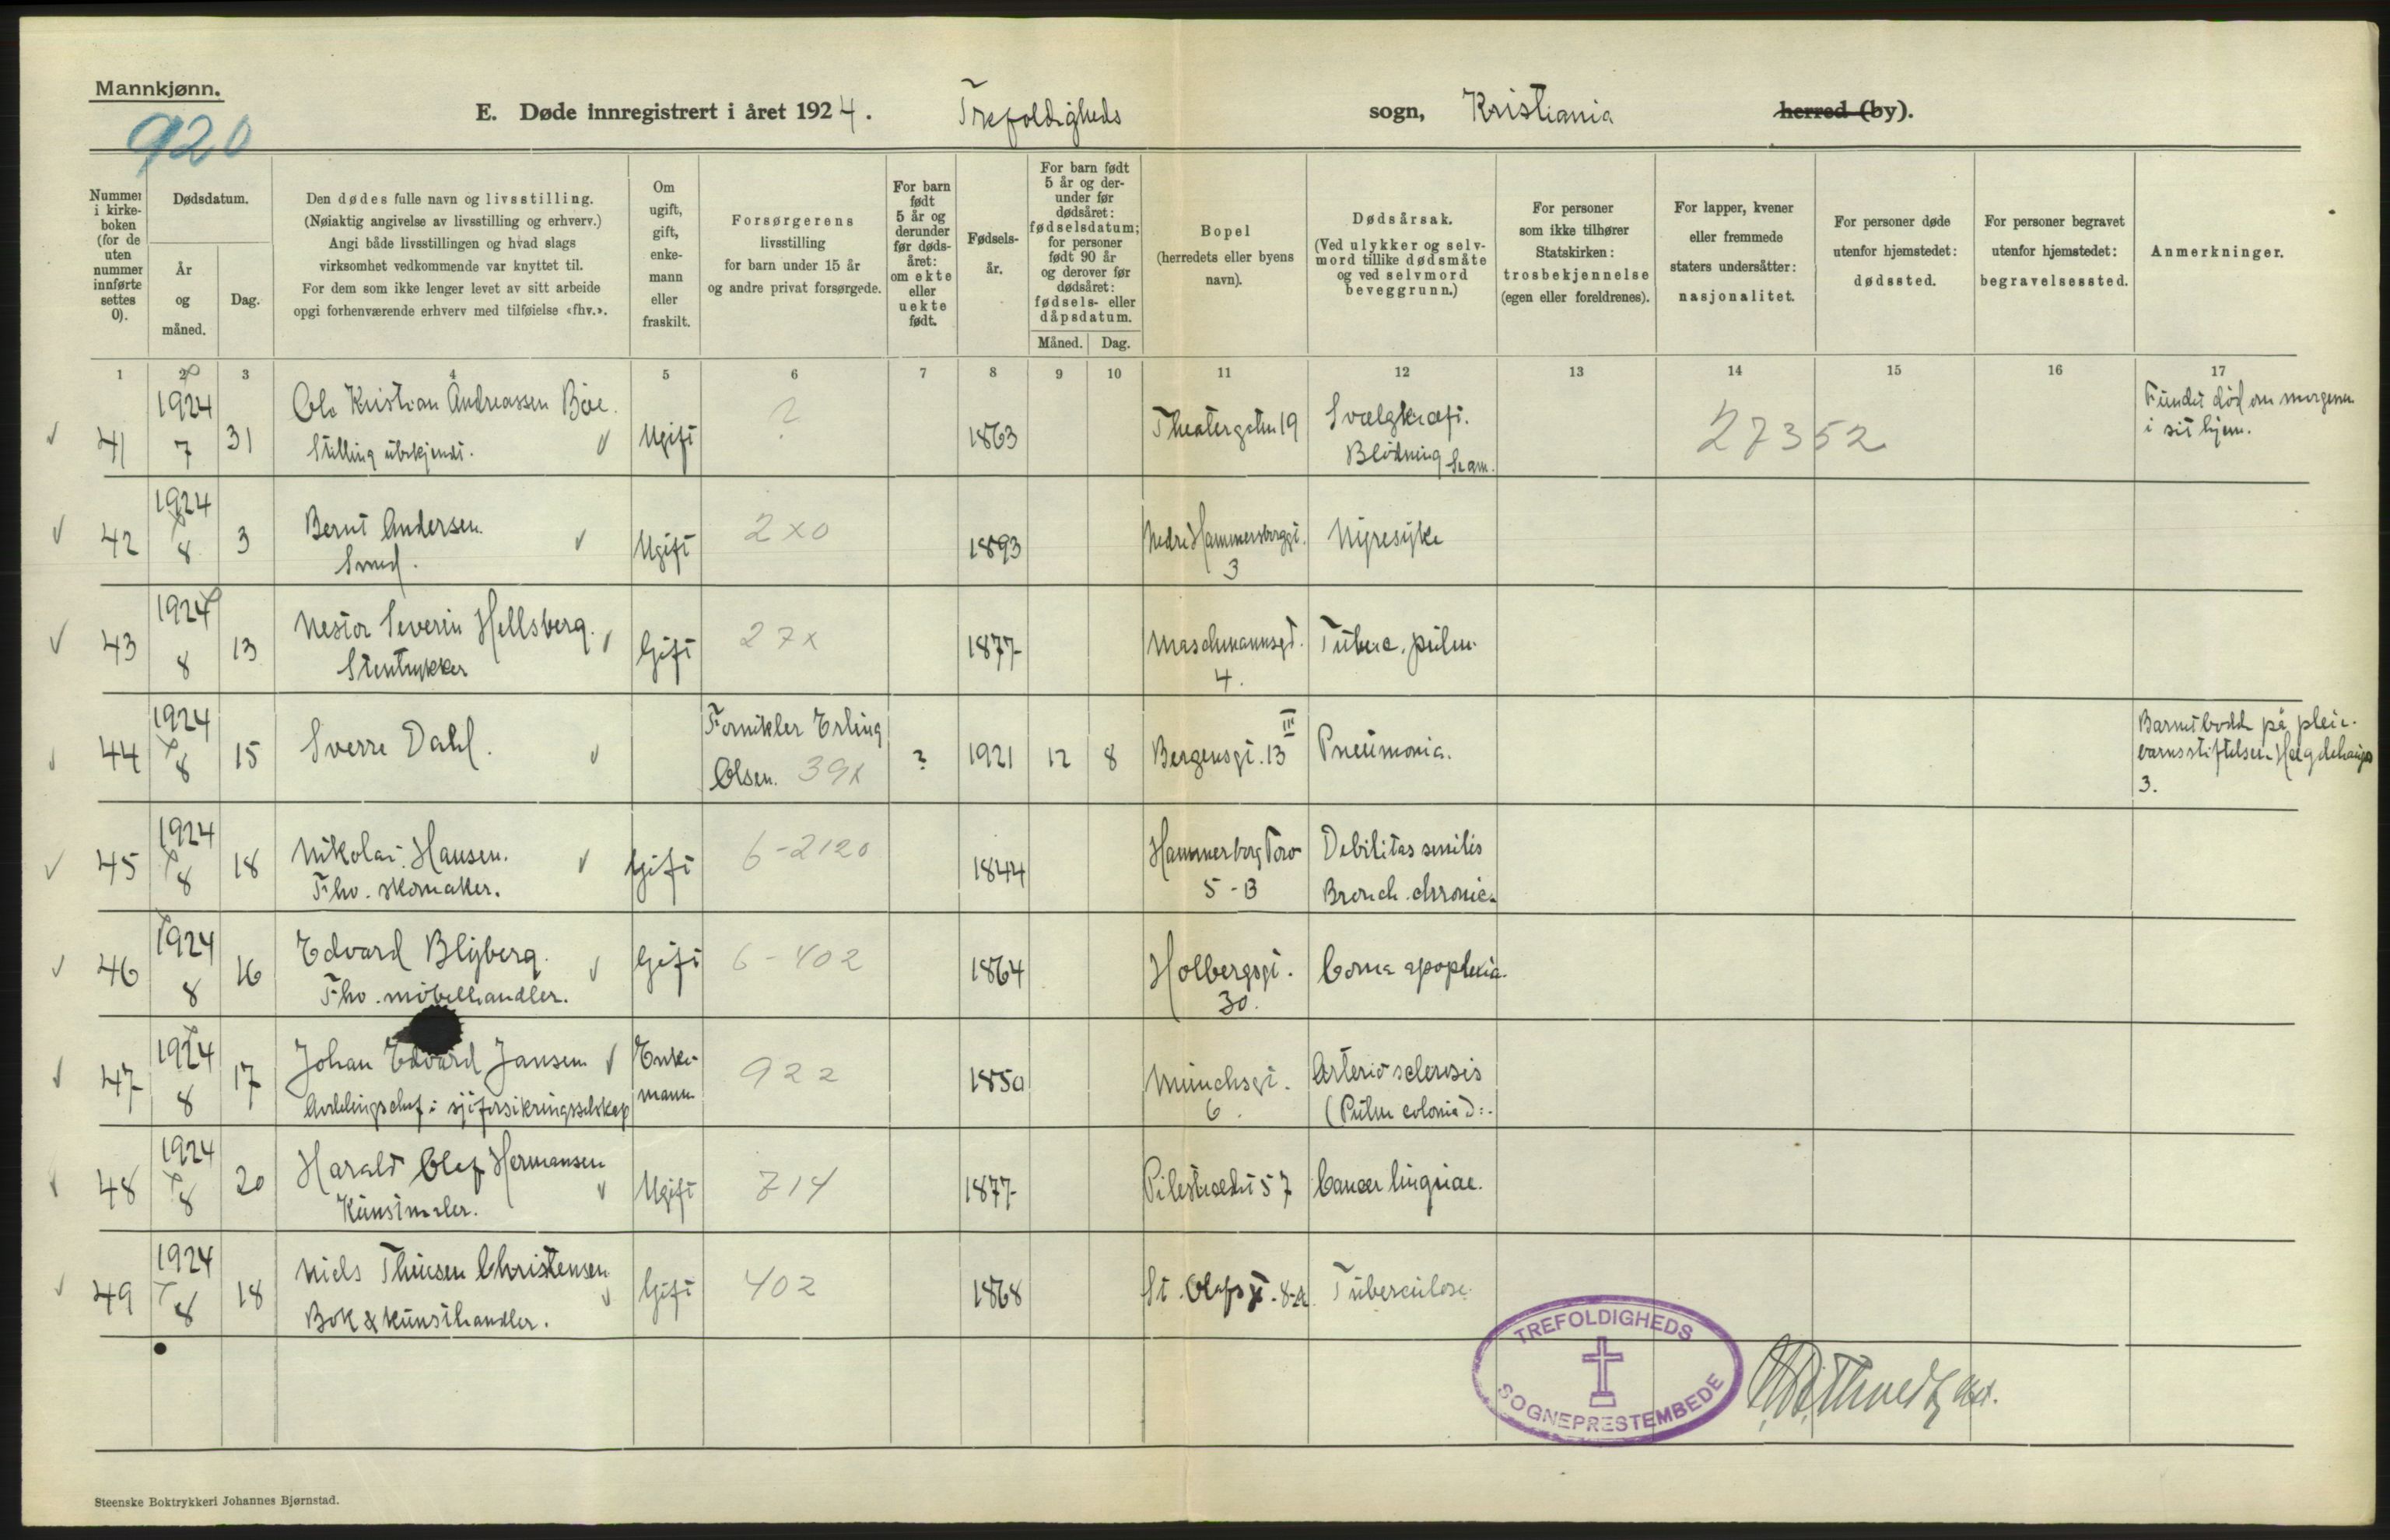 Mannkjønn.
920
E. Døde innregistrert i året 1924. Trefoldigheds sogn, Kristiania herred (by).
Nummer i kirkeboken (for de uten nummer innførte settes 0).
Dødsdatum.
År og måned.
Dag.
Den dødes fulle navn og livsstilling.
(Nøiaktig angivelse av livsstilling og erhverv.)
Angi både livsstillingen og hvad slags
virksomhet vedkommende var knyttet til.
For dem som ikke lenger levet av sitt arbeide
opgi forhenværende erhverv med tilføielse «fhv.».
Om ugift, gift, enkemann eller fraskilt.
Forsørgerens
livsstilling
for barn under 15 år
og andre privat forsørgede.
For barn født 5 år og derunder før dødsåret: om ekte eller uekte født.
Fødselsår.
For barn født 5 år og derunder før dødsåret: fødselsdatum; for personer født 90 år og derover før dødsåret: fødsels- eller dåpsdatum.
Måned. Dag.
Bopel
(herredets eller byens
navn).
Dødsårsak.
(Ved ulykker og selvmord tillike dødsmåte og ved selvmord beveggrunn.)
For personer
som ikke tilhører
Statskirken:
trosbekjennelse
(egen eller foreldrenes).
For lapper, kvener
eller fremmede
staters undersåtter:
nasjonalitet.
For personer døde
utenfor hjemstedet:
dødssted.
For personer begravet
utenfor hjemstedet:
begravelsessted.
Anmerkninger.
1 2 3 4 5 6 7 8 9 10 11 12 13 14 15 16 17
41 1924 7 31 Ole Kristian Andreassen Bøe. Ugift ? 1863 Theatergaten 19 Svælgkræft. 27352 Fundet død om morgenen
Stilling ubekjendt. Blødning i sit hjem.
42 1924 8 3 Bernt Andersen. Ugift 2x0 1893 Nedre Hammersborggt. Nyresyke
Smed. 3
43 1924 8 13 Nestor Severin Hellsberg. Gift 27x 1877 Maschmannsgt. Tuberc. pulm.
Stentrykker 4.
44 1924 8 15 Sverre Dahl. Fornikler Erling ? 1921 12 8 Bergensgt. 13 III Pneumonia. Barnet bodde på pleie-
Olsen. 39x barnsstiftelsen
3.
45 1924 8 18 Nikolai Hansen. Gift 6-2120 1844 Hammerborg Torv Debilitas senilis
Fhv. skomaker. 5-B Bronch. chronica
46 1924 8 16 Edvard Blyberg. Gift 6-402 1864 Holbergsgt. Coma apoplexia.
Fhv. møbelhandler. 30.
47 1924 8 17 Johan Edvard Jansen Enke- 922 1850 Munchsgt. Arterio sclerosis
Avdelingschef i sjøforsikringsselskap mann 6.
48 1924 8 20 Harald Olaf Hermansen Ugift 714 1877 Pilestrædet 57 Cancer linguae.
Kunstmaler.
49 1924 8 18 Niels Thuesen Christensen Gift 402 1868 St. Olafsgt. 8-A Tuberculose.
Bok & kunsthandler.
TREFOLDIGHEDS
SOGNEPRESTEMBEDE
Steenske Boktrykkeri Johannes Bjørnstad.